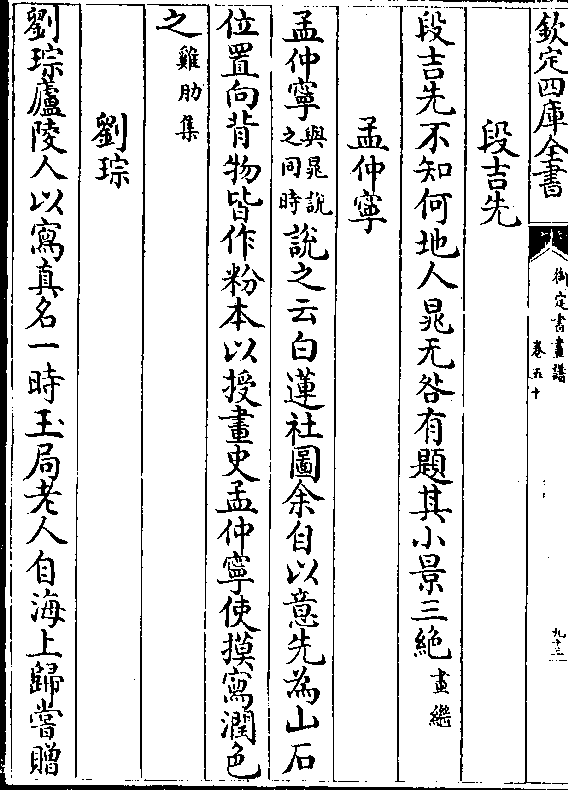 欽定四庫全書
御定書畫譜
卷五十
九十三
段吉先
段吉先不知何地人晁无咎有題其小景三絶畫繼
孟仲寧
孟仲寧與晁說之同時說之云白蓮社圖余自以意先為山石
位置向背物皆作粉本以授畫史孟仲寧使摸寫潤色
之雞肋集
劉琮
劉琮廬陵人以寫真名一時玉局老人自海上歸嘗贈